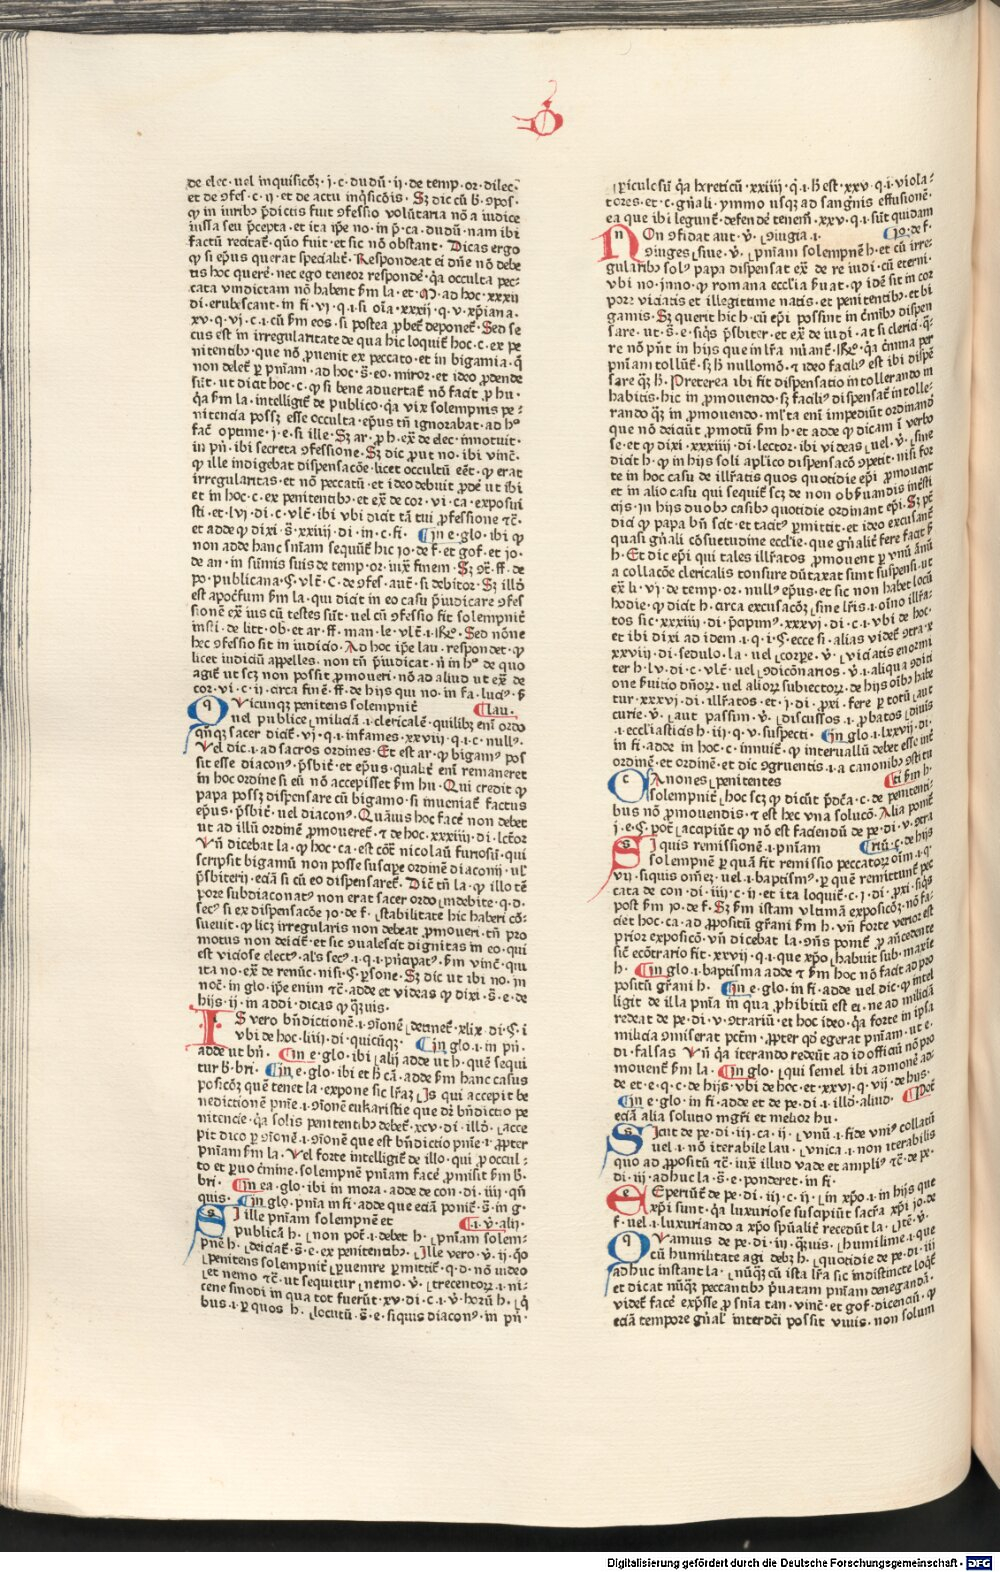 D
de elec· uel inquisicōꝫ· j· c· dudū· ij· de temp· or· dilec̄·
et de ꝯfes· c· ij· et de actu inq̄sicōis· Sꝫ dic cū b̄· ꝯpos·
ꝙ in iuribꝰ p̄dictis fuit ꝯfessio volūtaria nō a iudice
iussa seu p̄cepta· et ita ip̄e no· in p̄· ca· dudū· nam ibi
factū recitat̄· quō fuit· et sic nō obstant· Dicas ergo
ꝙ si ep̄us querat specialit̄· Respondeat ei dn̄e nō debe
tis hoc querē· nec ego teneor respondē· q̄a occulta pec·
cata vindictam nō habent ẜm la· et· M· ad hoc· xxxij
di· erubescant· in fi· vj· q· i· si oīa· xxxij· q· v· xp̄iana·
xv· q· vj· c· i· cū ẜm eos· si postea ꝓbet̄ deponet̄· Sed se
cus est in irregularitate de qua hic loquit̄ hoc· c· ex pe
nitentibꝰ· que nō ꝓuenit ex peccato· et in bigamia· q̄
non delet̄ ꝑ pn̄iam· ad hoc· s̄· eo· miror· et ideo ꝓdende
sūt· ut dicit hoc· c· ꝙ si bene aduertat̄ nō facit ꝓ hu·
q̄a ẜm la· intelligit̄ de publico· q̄a vix solempnis pe·
nitencia possꝫ esse occulta· ep̄us tn̄ ignorabat· ad hᵒ
fac̄ optime· j· e· si ille· Sꝫ ar· ꝓ h· ex̄ de elec· innotuit·
in pn̄· ibi secreta ꝯfessione· Sꝫ dic ꝓut no· ibi vinc̄·
ꝙ ille indigebat dispensacōe· licet occultū eēt· ꝙ erat
irregularitas· et nō peccatū· et ideo debuit ꝓdē· ut ibi
et in hoc· c· ex penitentibꝰ· et ex̄ de cor· vi· ca· exposui
sti· et· lvj· di· c· vlt̄· ibi vbi dicit tā tui ꝓfessione ⁊c̄·
et adde ꝙ dixi· s̄· xxiiij· di· in· c· fi· In e· glo· ibi ꝙ
non adde hanc sn̄iam sequūt̄ hic jo· de f· et gof· et jo·
de an· in sūmis suis de temp· or· iux̄ finem· Sꝫ ꝯ̄· ff· de
po· publicana· ꝭ· vlt̄· C· de ꝯfes· aut̄· si debitor· Sꝫ illō
est apoc̄fum ẜm la· qui dicit in eo casu p̄iudicare ꝯfes
sionē ex̄ ius cū testes sūt· uel cū ꝯfessio fit solempnit̄
insti· de litt· ob· et ar· ff· man· le· vlt̄· i· Rᵒ· Sed nōne
hec ꝯfessio sit in iudicio· Ad hoc ip̄e lau· respondet· ꝙ
licet iudiciū appelles· non tn̄ p̄iudicat· n̄ in hᵒ de quo
agit̄ ut scꝫ non possit ꝓmoueri· nō ad aliud ut ex̄ de
cor· vi· c· ij· circa finē· ff· de hijs qui no· in fa· lucꝰ· ꝭ
QVicunqꝫ penitens solempnit̄ Clau·
uel publice miliciā· i· clericalē· quilibꝫ eni ordo
qn̄qꝫ sacer dicit̄· vj· q· i· infames· xxviij· q· i· c· nullꝰ·
Vel dic· i· ad sacros ordines· Et est ar· ꝙ bigamꝰ pos
sit esse diaconꝰ· p̄sbit̄· et ep̄us· qualit̄ eni remaneret
in hoc ordine si eū nō accepisset ẜm hu· Qui credit ꝙ
papa possꝫ dispensare cū bigamo· si inueniat̄ factus
ep̄us· p̄sbit̄· uel diaconꝰ· Quāuis hoc facē non debet
ut ad illū ordinē ꝓmoueret̄· ⁊ de hoc· xxxiiij· di· lc̄tor
Vn̄ dicebat la· ꝙ hoc· ca· est cōt̄ nicolaū furiosū· qui
scripsit bigamū non posse suscipe ordinē diaconij· ul̓
p̄sbiterij· eciā si cū eo dispensaret̄· Dic̄t tn̄ la· ꝙ illo tē
pore subdiaconatꝰ non erat sacer ordo indebite· q· d·
secꝰ si ex dispensacōe jo· de f· stabilitate hic haberi cō·
sueuit· ꝙ licꝫ irregularis non debeat ꝓmoueri· tn̄ pro
motus non deicit̄· et sic ꝯualescit dignitas in eo· qui
est viciose electꝰ· al̓s secꝰ· i· q· i· pn̄apatꝰ· ẜm vinc̄· qui
ita no· ex̄ de renūc· nisi· ꝭ· ꝑsone· Sꝫ dic ut ibi no· in
noc̄· in glo· ip̄e enim ⁊c̄· adde et videas ꝙ dixi· s̄· e· de
hijs· ij· in addi· dicas ꝙ qᷓuis·
IS vero bn̄dictionē· i· ꝯionē detinet̄· xlix· di· ꝭ· i
vbi de hoc· liiij· di· quicūqꝫ· In glo· i· in pn̄·
adde ut bn̄· In e· glo· ibi alij adde ut h· quē sequi
tur b· bri· In e· glo· ibi et h̄ cā· adde ẜm hanc casus
posicōꝫ quē tenet la· expone sic lr̄aꝫ Is qui accepit be
nedictionē pnīe· i· ꝯionē eukaristie que dꝫ bn̄dictio pe
nitencie· q̄a solis penitentibꝰ debet̄· xcv· di· illō· acce
pit dico ꝑ ꝯionē· i· ꝯionē que est bn̄dictio pnīe· i· ꝓpter
pnīam ẜm la· Vel forte intelligit̄ de illo· qui ꝓ occul·
to et ꝑuo c̄mine· solempnē pnīam facē ꝓmisit ẜm b̄·
bri· In ea· glo· ibi in mora· adde de con· di· iiij· qn̄
quis· In glo· pnīa in fi· adde que eciā ponit̄· s̄· in g·
SI ille pnīam solempnē et C· i· v· alij·
publicā h· non pōt· i· debet h· pnīam solem·
pnē h· deiciat̄· s̄· e· ex penitentibꝰ· Ille vero· v̄· ij· q̄o
penitens solempnit̄ ꝑuenire ꝑmittit̄· q· d· nō uideo
et nemo ⁊c̄· ut sequitur nemo· v̄· trecentorꝫ· i· ni·
cene sinodi in qua tot fuerūt· xv· di· c· i· v̄· horū h· q̄
bus· i· ꝑ quos h· locutū· s̄· e· siquis diaconꝰ· in pn̄·
ꝑiculc̄ sū· q̄a hereticū· xxiiij· q· i· h̄ est· xxv· q· i· viola·
tores· et· c· gn̄ali· ymmo usqꝫ ad sanḡnis effusionē·
ea que ibi legunt̄· defendē tenem̄· xxv· q· i· sūt quidam
NOn ꝯfidat aut· v̄· ꝯiugia· i· Jo· de f·
ꝯiuges siue· v̄· pn̄iam solempnē h· et cū irre·
gularibꝰ solꝰ papa dispensat ex̄· de re iudi· cū eterni·
vbi no· inno· ꝙ romana ecclīa ẜuat· ꝙ idē sit in cor
pore viciatis et illegittime natis· et penitentibꝰ et bi
gamis· Sꝫ querit hic h· cū ep̄i possint in c̄nibꝰ dispen
sare· ut· s̄· e· siq̄s p̄sbiter· et ex̄ de iudi· at si clerici· q̄·
re nō pn̄t in hijs que in lr̄a nūant̄· Rᵒ· q̄a c̄mina per
pn̄iam tollūt̄· sꝫ h̄ nullomō· ⁊ ideo faciliꝰ est ibi dispē
sare qᷓꝫ h̄· Preterea ibi fit dispensatio in tollerando in
habitis· hic in ꝓmouendo· sꝫ faciliꝰ dispensat̄ in tolle·
rando qᷓꝫ in ꝓmouendo· ml̓ta eni impediūt ordinand
que nō deiciūt ꝓmotū ẜm h· et adde ꝙ dicam i verbo
se· et ꝙ dixi· xxxiiij· di· lector· ibi videas uel· v̄· sine
dicit h· ꝙ in hijs soli apl̓ico dispensacō ꝯpetit· nisi for
te in hoc casu de illr̄atis quos quotidie ep̄i ꝓmouent
et in alio casu qui sequit̄ scꝫ de non obẜuandis in̄sti
cijs· in hijs duobꝰ casibꝰ quotidie ordinant ep̄i· Sꝫ pt̄
dici ꝙ papa bn̄ scit· et tacitꝰ ꝑmittit· et ideo excusant̄
quasi gn̄ali cōsuetudine ecclīe· que gn̄alit̄ fere facit p̄
h· Et dic ep̄i qui tales illr̄atos ꝓmouent ꝑ vnū ānū
a collacōe clericalis tonsure dūtaxat sunt suspensi· ut
ex̄ li· vj· de temp· or· nullꝰ ep̄us· et sic non habet locū
hodie· ꝙ dicit h· circa excusacōꝫ sine lr̄is· i· oīno illr̄a·
tos sic· xxxiiij· di· p̄cipimꝰ· xxxvj· di· c· i· vbi de hoc·
et ibi dixi ad idem· i· q· i· ꝭ· ecce si· alias videt̄ ꝯtra· x
xxviij· di· sedulo· la· uel corpe· v̄· viciatis enormi
ter h· lv· di· c· vlt̄· uel ꝯdicōnarios· v̄· i· aliqua ꝯdici
one ẜuitio dn̄orꝫ· uel aliorꝫ subiectorꝫ· de hijs oībꝰ habe
tur· xxxvj· di· illr̄atos· et· j· di· ꝓxi· fere ꝑ totū aut
curie· v̄· aut passim· v̄· discussos· i· ꝓbatos diuis
i· eccl̄iasticis h· iij· q· v· suspecti· In glo· lxxvij· di·
in fi· adde in hoc· c· innuit̄· ꝙ interuallū debet esse int̄
ordinē· et ordinē· et dic ꝯgruentis· i· a canonibꝰ ꝯstitu
CAnones penitentes C· ti ẜm h·
solempnit̄ hoc scꝫ ꝙ dicūt p̄dc̄a· c· de penitenti·
bus nō ꝓmouendis· ⁊ est hec vna solucō· Alia ponit̄
j· e· ꝭ· pōt̄ acapiūt ꝙ nō est faciendū de pe· di· v· ꝯtra
SI quis remissionē· i· pn̄iam C riū· c· de hijs
solempnē ꝑ quā fit remissio peccatorꝫ oīm· i· q·
vij· siquis om̄eꝫ· uel· i· baptismꝰ ꝑ quē remittunt̄ pec
cata de con· di· iiij· c· ij· et ita loquit̄· c· j· di· ꝓxi· siq̄s
post ẜm jo· de f· Sꝫ ẜm istam vltimā exposicōꝫ nō fa·
ciet hoc· ca· ad ꝓpositū gr̄ani ẜm h· vn̄ forte verior est
prior exposicō· vn̄ dicebat la· ꝯn̄s ponit̄ ꝓ an̄cedente
sic̄ ecōtrario fit· xxvij· q· i· que xp̄o habuit sub maxie
h· In glo· i· baptisma adde ⁊ ẜm hoc nō facit ad pro
positū gr̄ani h· In e· glo· in fi· adde uel dic· ꝙ intel
ligit de illa pnīa in qua ꝓhibitū est ei· ne ad miliciā
redeat de pe· di· v· ꝯtrariū· et hoc ideo· q̄a forte in ipsa
milicia ꝯmiserat pctm̄· ꝓpter qō egerat pnīam· ut e·
di· falsas Vn̄ q̄a iterando redeūt ad id officiū nō pro
mouent̄ ẜm la· In glo· qui semel ibi admonē ad·
de et· e· q· c· de hijs· vbi de hoc· et· xxvj· q· vij· de hijs·
In e· glo· in fi· adde et de pe· di· i· illō· aliud· C Pōt̄
eciā alia solutio mgr̄i et melior hu·
SIcut de pe· di· iij· ca· ij· vnū· i· fide vniꝰ collatū
uel· i· nō iterabile lau· vnica· i· non iterabilis
quo ad ꝓpositū ⁊c̄· iux̄ illud vade et ampliꝰ ⁊c̄· de pe·
di· iij· adhuc la· s̄· e· ponderet· in fi·
EEpertūt̄ de pe· di· iij· c· ij· in xp̄o· i· in hijs que
xp̄i sunt· q̄a luxuriose suscipiūt sacr̄a xp̄i jo· de
f· uel· i· luxuriando a xp̄o spūalit̄ recedūt la· Ite· v̄·
QVamus de pe· di· iij· qᷓuis· humilime· i· que
cū humilitate agi debꝫ h· quotidie de pe· di· iij
adhuc instant la· nūq̄ꝫ cū ista lr̄a sic indistincte loqt̄
et dicat nūq̄ꝫ peccantibꝰ p̄uatam pnīam denegandā·
videt̄ facē exp̄sse ꝓ sn̄ia tan· vinc̄· et gof· dicenciū· ꝙ
eciā tempore gn̄al̓ interdc̄i possit viuis· non solum
Digitalisierung gefördert durch die Deutsche Forschungsgemeinschaft - DFG